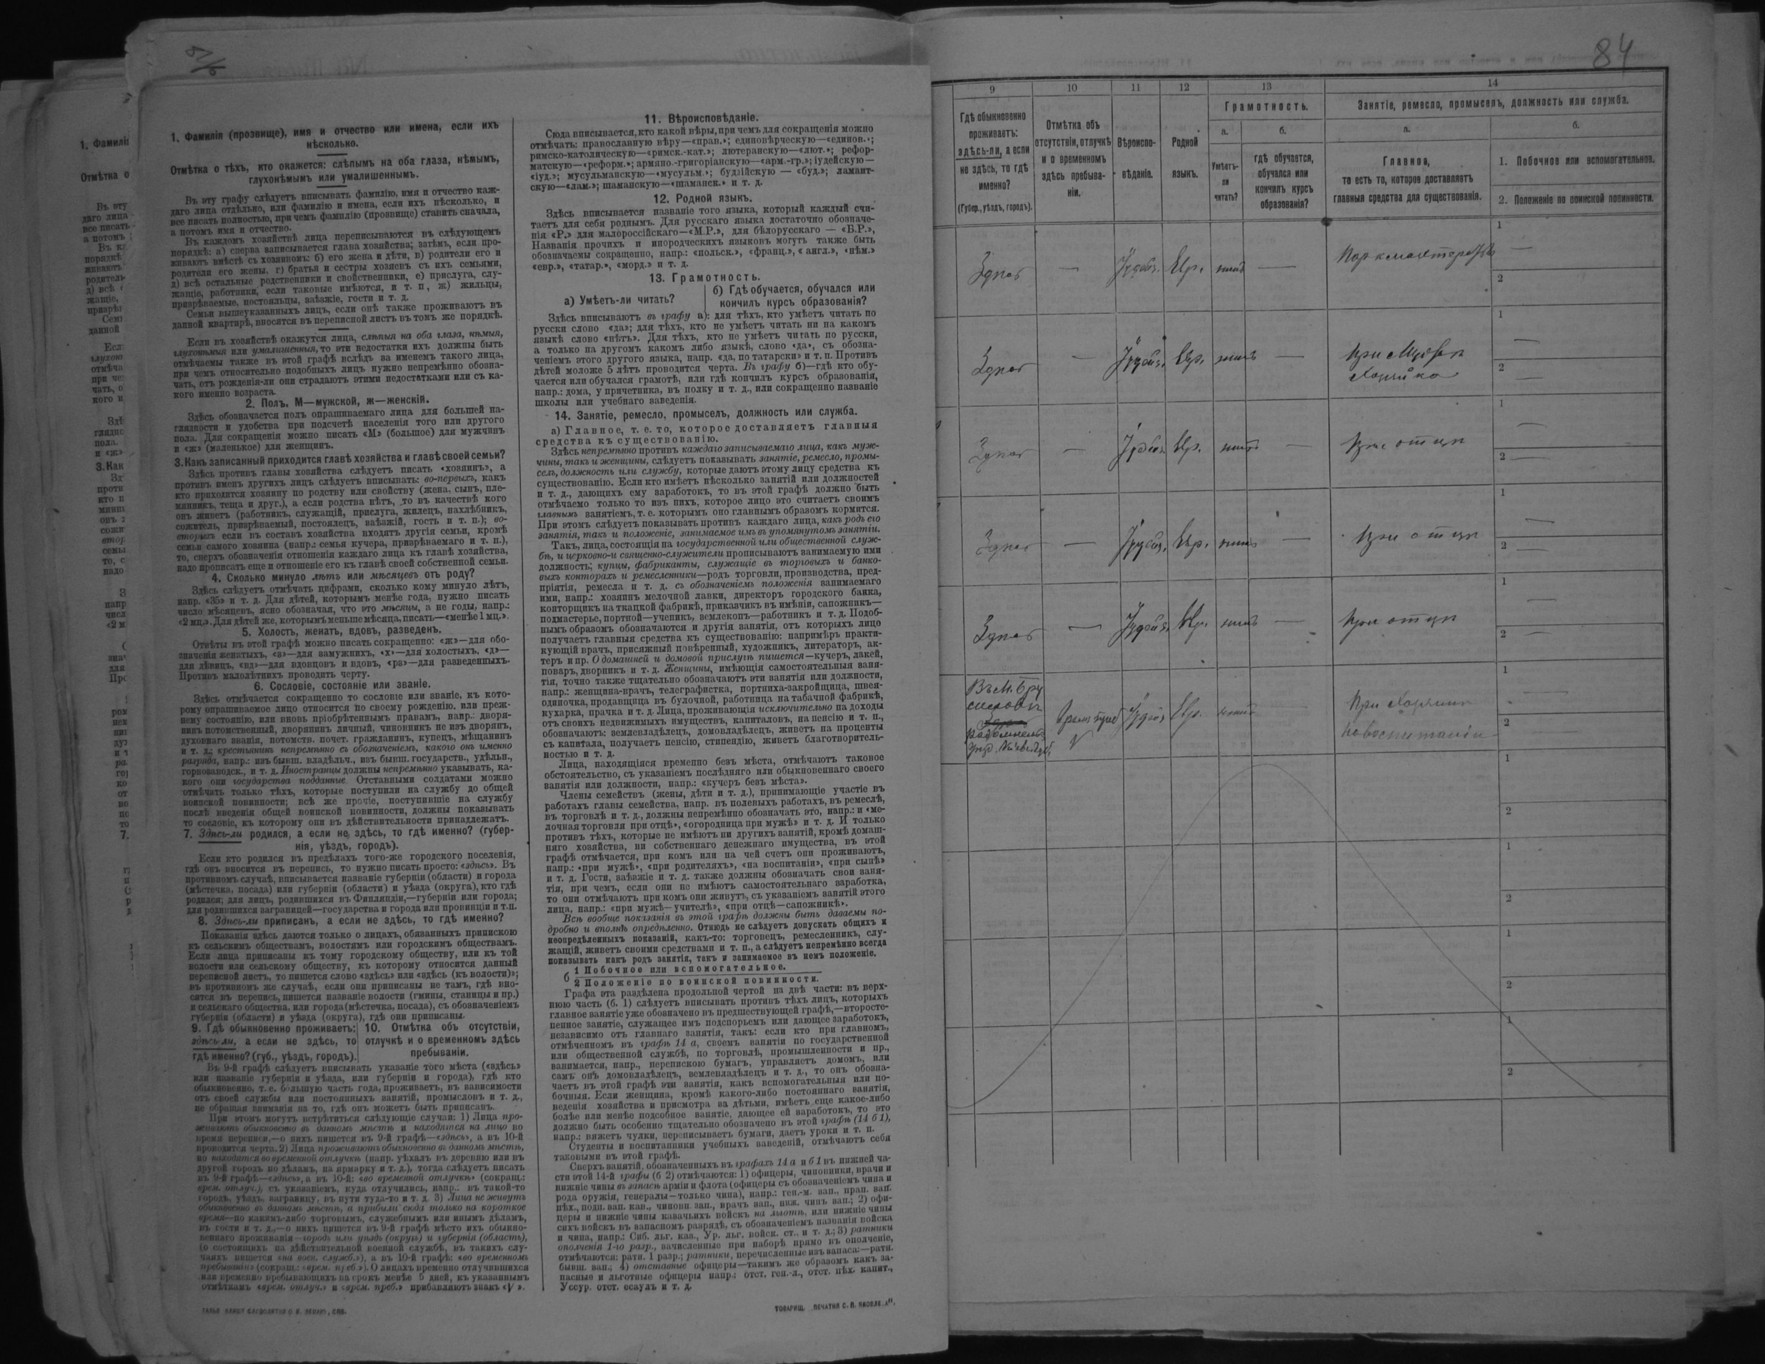 84
1. Фамилія (прозвище), имя и отчество или имена, если ихъ
нѣсколько.
Отмѣтка о тѣхъ, кто окажется: слѣпымъ на оба глаза, нѣмымъ,
глухонѣмымъ или умалишеннымъ.
Въ эту графу слѣдуетъ вписывать фамилію, имя и отчество каж-
даго лица отдѣльно, или фамилію и имена, если ихъ нѣсколько, и
все писать полностью, при чемъ фамилію (прозвище) ставить сначала,
а потомъ имя и отчество.
Въ каждомъ хозяйствѣ лица переписываются въ слѣдующемъ
порядкѣ: а) сперва записывается глава хозяйства; затѣмъ, если про-
живаютъ вмѣстѣ съ хозяиномъ: б) его жена и дѣти, в) родители его и
родители его жены, г) братья и сестры хозяевъ съ ихъ семьями,
д) всѣ остальные родственники и свойственники, е) прислуга, слу-
жащіе, работники, если таковые имѣются, и т. п., ж) жильцы,
призрѣваемые, постояльцы, заѣзжіе, гости и т. д.
Семьи вышеуказанныхъ лицъ, если онѣ также проживаютъ въ
данной квартирѣ, вносятся въ переписной листъ въ томъ же порядкѣ.
Если въ хозяйствѣ окажутся лица, слѣпыя на оба глаза, нѣмыя,
глухонѣмыя или умалишенныя, то эти недостатки ихъ должны быть
отмѣчаемы также въ этой графѣ вслѣдъ за именемъ такого лица,
при чемъ относительно подобныхъ лицъ нужно непремѣнно обозна-
чать, отъ рожденія-ли они страдаютъ этими недостатками или съ ка-
кого именно возраста.
2. Полъ, М—мужской, ж—женскій.
Здѣсь обозначается полъ опрашиваемаго лица для большей на-
глядности и удобства при подсчетѣ населенія того или другого
пола. Для сокращенія можно писать «М» (большое) для мужчинъ
и «ж» (маленькое) для женщинъ.
3. Какъ записанный приходится главѣ хозяйства и главѣ своей семьи?
Здѣсь противъ главы хозяйства слѣдуетъ писать «хозяинъ», а
противъ именъ другихъ лицъ слѣдуетъ вписывать: во-первыхъ, какъ
кто приходится хозяину по родству или свойству (жена, сынъ, пле-
мянникъ, теща и друг.), а если родства нѣтъ, то въ качествѣ кого
онъ живетъ (работникъ, служащій, прислуга, жилецъ, нахлѣбникъ,
сожитель, призрѣваемый, постоялецъ, заѣзжій, гость и т. п.); во-
вторыхъ если въ составъ хозяйства входятъ другія семьи, кромѣ
семьи самого хозяина (напр.: семья кучера, призрѣваемаго и т. п.),
то, сверхъ обозначенія отношенія каждаго лица къ главѣ хозяйства,
надо прописать еще и отношеніе его къ главѣ своей собственной семьи.
4. Сколько минуло лѣтъ или мѣсяцевъ отъ роду?
Здѣсь слѣдуетъ отмѣчать цифрами, сколько кому минуло лѣтъ,
напр. «35» и т. д. Для дѣтей, которымъ менѣе года, нужно писать
число мѣсяцевъ, ясно обозначая, что это мѣсяцы, а не годы, напр.:
«2 мц.». Для дѣтей же, которымъ меньше мѣсяца, писать—«менѣе 1 мц.».
5. Холостъ, женатъ, вдовъ, разведенъ.
Отвѣты въ этой графѣ можно писать сокращенно: «ж»—для обо-
значенія женатыхъ, «з»—для замужнихъ, «х»—для холостыхъ, «д»—
для дѣвицъ, «вд»—для вдовцовъ и вдовъ, «рз»—для разведенныхъ.
Противъ малолѣтнихъ проводить черту.
6. Сословіе, состояніе или званіе.
Здѣсь отмѣчается сокращенно то сословіе или званіе, къ кото-
рому опрашиваемое лицо относится по своему рожденію, или преж-
нему состоянію, или вновь пріобрѣтеннымъ правамъ, напр.: дворя-
нинъ потомственный, дворянинъ личный, чиновникъ не изъ дворянъ,
духовнаго званія, потомств. почет. гражданинъ, купецъ, мѣщанинъ
и т. д.; «крестьянинъ непремѣнно съ обозначеніемъ, какого онъ именно
разряда, напр.: изъ бывш. владѣльч., изъ бывш. государств., удѣльн.,
горнозаводск., и т. д. Иностранцы должны непремѣнно указывать, ка-
кого они государства подданные. Отставными солдатами можно
отмѣчать только тѣхъ, которые поступили на службу до общей
воинской повинности; всѣ же прочіе, поступившіе на службу
послѣ введенія общей воинской повинности, должны показывать
то сословіе, къ которому они въ дѣйствительности принадлежатъ.
7. Здѣсь-ли родился, а если не здѣсь, то гдѣ именно? (губер-
нія, уѣздъ, городъ).
Если кто родился въ предѣлахъ того-же городского поселенія,
гдѣ онъ вносится въ перепись, то нужно писать просто: «здѣсь». Въ
противномъ случаѣ, вписывается названіе губерніи (области) и города
(мѣстечка, посада) или губерніи (области) и уѣзда (округа), кто гдѣ
родился; для лицъ, родившихся въ Финляндіи,—губерніи или города;
для родившихся заграницей—государства и города или провинціи и т.п.
8. Здѣсь-ли приписанъ, а если не здѣсь, то гдѣ именно?
Показанія здѣсь даются только о лицахъ, обязанныхъ припискою
къ сельскимъ обществамъ, волостямъ или городскимъ обществамъ.
Если лица приписаны къ тому городскому обществу, или къ той
волости или сельскому обществу, къ которому относится данный
переписной листъ, то пишется слово «здѣсь» или «здѣсь (къ волости)»;
въ противномъ же случаѣ, если они приписаны не тамъ, гдѣ вно-
сятся въ перепись, пишется названіе волости (гмины, станицы и пр.)
и сельскаго общества, или города (мѣстечка, посада), съ обозначеніемъ
губерніи (области) и уѣзда (округа), гдѣ они приписаны.
9. Гдѣ обыкновенно проживаетъ:
здѣсь-ли, а если не здѣсь, то
гдѣ именно? (губ., уѣздъ, городъ).
10. Отмѣтка объ отсутствіи,
отлучкѣ и о временномъ здѣсь
пребываніи.
Въ 9-й графѣ слѣдуетъ вписывать указаніе того мѣста («здѣсь»
или названіе губерніи и уѣзда, или губерніи и города), гдѣ кто
обыкновенно, т. е. большую часть года, проживаетъ, въ зависимости
отъ своей службы или постоянныхъ занятій, промысловъ и т. д.,
не обращая вниманія на то, гдѣ онъ можетъ быть приписанъ.
При этомъ могутъ встрѣтиться слѣдующіе случаи: 1) Лица про-
живаютъ обыкновенно въ данномъ мѣстѣ и находятся на лицо во
время переписи,—о нихъ пишется въ 9-й графѣ—«здѣсь», а въ 10-й
проводится черта. 2) Лица проживаютъ обыкновенно въ данномъ мѣстѣ,
но находятся во временной отлучкѣ (напр. уѣхалъ въ деревню или въ
другой городъ по дѣламъ, на ярмарку и т. д.), тогда слѣдуетъ писать
въ 9-й графѣ—«здѣсь», а въ 10-й: «во временной отлучкѣ» (сокращ.:
врем. отлуч.), съ указаніемъ, куда отлучились, напр.: въ такой-то
городъ, уѣздъ, заграницу, въ пути туда-то и т. д. 3) Лица не живутъ
обыкновенно въ данномъ мѣстѣ, а прибыли сюда только на короткое
время—по какимъ-либо торговымъ, служебнымъ или инымъ дѣламъ,
въ гости и т. д.,—о нихъ пишется въ 9-й графѣ мѣсто ихъ обыкно-
веннаго проживанія—городъ или уѣздъ (округъ) и губернія (область),
(о состоящихъ на дѣйствительной военной службѣ, въ такихъ слу-
чаяхъ пишется «на воен. службѣ»), а въ 10-й графѣ: «во временномъ
пребываніи» (сокращ.: «врем. преб.»). О лицахъ временно отлучившихся
или временно пребывающихъ на срокъ менѣе 5 дней, къ указаннымъ
отмѣткамъ «врем. отлуч.» и «врем. преб.» прибавляютъ знакъ «V».
11. Вѣроисповѣданіе.
Сюда вписывается, кто какой вѣры, при чемъ для сокращенія можно
отмѣчать: православную вѣру—«прав.»; единовѣрческую—«единов.»;
римско-католическую—«римск.-кат.»; лютеранскую—«лют.»; рефор-
матскую—«реформ.»; армяно-григоріанскую—«арм.-гр.»; іудейскую—
«іуд.»; мусульманскую—«мусульм.»; буддійскую — «буд.»; ламаит-
скую—«лам.»; шаманскую—«шаманск.» и т. д.
12. Родной языкъ.
Здѣсь вписывается названіе того языка, который каждый счи-
таетъ для себя роднымъ. Для русскаго языка достаточно обозначе-
нія «Р.» для малороссійскаго—«М.Р.», для бѣлорусскаго — «Б.Р.»,
Названія прочихъ и инородческихъ языковъ могутъ также быть
обозначаемы сокращенно, напр.: «польск.», «франц.», «англ.», «нѣм.»
«евр.», «татар.», «морд.» и т. д.
13. Грамотность.
а) Умѣетъ-ли читать?
б) Гдѣ обучается, обучался или
кончилъ курсъ образованія?
Здѣсь вписываютъ въ графу а): для тѣхъ, кто умѣетъ читать по
русски слово «да»; для тѣхъ, кто не умѣетъ читать ни на какомъ
языкѣ слово «нѣтъ». Для тѣхъ, кто не умѣетъ читать по русски,
а только на другомъ какомъ либо языкѣ, слово «да», съ обозна-
ченіемъ этого другого языка, напр. «да, по татарски» и т. п. Противъ
дѣтей моложе 5 лѣтъ проводится черта. Въ графу б)—гдѣ кто обу-
чается или обучался грамотѣ, или гдѣ кончилъ курсъ образованія,
напр.: дома, у причетника, въ полку и т. д., или сокращенно названіе
школы или учебнаго заведенія.
14. Занятіе, ремесло, промыселъ, должность или служба.
а) Главное, т. е. то, которое доставляетъ главныя
средства къ существованію.
Здѣсь непремѣнно противъ каждаго записываемаго лица, какъ муж-
чины, такъ и женщины, слѣдуетъ показывать занятіе, ремесло, промы-
селъ, должность или службу, которые даютъ этому лицу средства къ
существованію. Если кто имѣетъ нѣсколько занятій или должностей
и т. д., дающихъ ему заработокъ, то въ этой графѣ должно быть
отмѣчаемо только то изъ нихъ, которое лицо это считаетъ своимъ
главнымъ занятіемъ, т. е. которымъ оно главнымъ образомъ кормится.
При этомъ слѣдуетъ показывать противъ каждаго лица, какъ родъ его
занятія, такъ и положеніе, занимаемое имъ въ упомянутомъ занятіи.
Такъ, лица, состоящія на государственной или общественной служ-
бѣ, и церковно-и священно-служители прописываютъ занимаемую ими
должность; купцы, фабриканты, служащіе въ торговыхъ и банко-
выхъ конторахъ и ремесленники—родъ торговли, производства, пред-
пріятія, ремесла и т. д. съ обозначеніемъ положенія занимаемаго
ими, напр.: хозяинъ мелочной лавки, директоръ городского банка,
конторщикъ на ткацкой фабрикѣ, приказчикъ въ имѣніи, сапожникъ—
подмастерье, портной—ученикъ, землекопъ—работникъ и т. д. Подоб-
нымъ образомъ обозначаются и другія занятія, отъ которыхъ лицо
получаетъ главныя средства къ существованію: напримѣръ практи-
кующій врачъ, присяжный повѣренный, художникъ, литераторъ, ак-
теръ и пр. О домашней и домовой прислугѣ пишется—кучеръ, лакей,
поваръ, дворникъ и т. д. Женщины, имѣющія самостоятельныя заня-
тія, точно также тщательно обозначаютъ эти занятія или должности,
напр.: женщина-врачъ, телеграфистка, портниха-закройщица, швея-
одиночка, продавщица въ булочной, работница на табачной фабрикѣ,
кухарка, прачка и т. д. Лица, проживающія исключительно на доходы
отъ своихъ недвижимыхъ имуществъ, капиталовъ, на пенсію и т. п.,
обозначаютъ: землевладѣлецъ, домовладѣлецъ, живетъ на проценты
съ капитала, получаетъ пенсію, стипендію, живетъ благотворитель-
ностью и т. д.
Лица, находящіяся временно безъ мѣста, отмѣчаютъ таковое
обстоятельство, съ указаніемъ послѣдняго или обыкновеннаго своего
занятія или должности, напр.: «кучеръ безъ мѣста».
Члены семействъ (жены, дѣти и т. д.), принимающіе участіе въ
работахъ главы семейства, напр. въ полевыхъ работахъ, въ ремеслѣ,
въ торговлѣ и т. д., должны непремѣнно обозначать это, напр.: и «ме-
лочная торговля при отцѣ», «огородница при мужѣ» и т. д. И только
противъ тѣхъ, которые не имѣютъ ни другихъ занятій, кромѣ домаш-
няго хозяйства, ни собственнаго денежнаго имущества, въ этой
графѣ отмѣчается, при комъ или на чей счетъ они проживаютъ,
напр.: «при мужѣ», «при родителяхъ», «на воспитаніи», «при сынѣ»
и т. д. Гости, заѣзжіе и т. д. также должны обозначать свои заня-
тія, при чемъ, если они не имѣютъ самостоятельнаго заработка,
то они отмѣчаютъ при комъ они живутъ, съ указаніемъ занятій этого
лица, напр.: «при мужѣ—учителѣ», «при отцѣ—сапожникѣ».
Всѣ вообще показанія въ этой графѣ должны быть даваемы по-
дробно и вполнѣ опредѣленно. Отнюдь не слѣдуетъ допускать общихъ и
неопредѣленныхъ показаній, какъ-то: торговецъ, ремесленникъ, слу-
жащій, живетъ своими средствами и т. п., а слѣдуетъ непремѣнно всегда
показывать какъ родъ занятія, такъ и занимаемое въ немъ положеніе.
б 1 Побочное или вспомогательное.
2 Положеніе по воинской повинности.
Графа эта раздѣлена продольной чертой на двѣ части: въ верх-
нюю часть (б. 1) слѣдуетъ вписывать противъ тѣхъ лицъ, которыхъ
главное занятіе уже обозначено въ предшествующей графѣ,—второсте-
пенное занятіе, служащее имъ подспорьемъ или дающее заработокъ,
независимо отъ главнаго занятія, такъ: если кто при главномъ,
отмѣченномъ въ графѣ 14 а, своемъ занятіи по государственной
или общественной службѣ, по торговлѣ, промышленности и пр.,
занимается, напр., перепискою бумагъ, управляетъ домомъ, или
самъ онъ домовладѣлецъ, землевладѣлецъ и т. д., то онъ обозна-
чаетъ въ этой графѣ эти занятія, какъ вспомогательныя или по-
бочныя. Если женщина, кромѣ какого-либо постояннаго занятія,
веденія хозяйства и присмотра за дѣтьми, имѣетъ еще какое-либо
болѣе или менѣе подсобное занятіе, дающее ей заработокъ, то это
должно быть особенно тщательно обозначено въ этой графѣ (14 б 1),
напр.: вяжетъ чулки, переписываетъ бумаги, даетъ уроки и т. п.
Студенты и воспитанники учебныхъ заведеній, отмѣчаютъ себя
таковыми въ этой графѣ.
Сверхъ занятій, обозначенныхъ въ графахъ 14 а и б 1 въ нижней ча-
сти этой 14-й графы (б 2) отмѣчаются: 1) офицеры, чиновники, врачи и
нижніе чины въ запасѣ арміи и флота (офицеры съ обозначеніемъ чина и
рода оружія, генералы—только чина), напр.: ген.-м. зап., прап. зап.
пѣх., подп. зап. кав., чиновн. зап., врачъ зап., ниж. чинъ зап.; 2) офи-
церы и нижніе чины казачьихъ войскъ на льготѣ, или нижніе чины
сихъ войскъ въ запасномъ разрядѣ, съ обозначеніемъ названія войска
и чина, напр.: Сиб. льг. каз., Ур. льг. войск. ст., и т. д.; 3) ратники
ополченія 1-го разр., зачисленные при наборѣ прямо въ ополченіе,
отмѣчаются: ратн. 1 разр.; ратники, перечисленные изъ запаса:—ратн.
бывш. зап.; 4) отставные офицеры—такимъ же образомъ какъ за-
пасные и льготные офицеры напр.: отст. ген.-л., отст. пѣх. капит.,
Уссур. отст. есаулъ и т. д.
9 10 11 12 13 14
Гдѣ обыкновенно
проживаетъ:
здѣсь-ли, а если
не здѣсь, то гдѣ
именно?
(Губер., уѣздъ, городъ).
Отмѣтка объ
отсутствіи, отлучкѣ
и о временномъ
здѣсь пребыва-
ніи.
Вѣроиспо-
вѣданіе.
Родной
языкъ.
Грамотность.
а. б.
Умѣетъ-
ли
читать?
гдѣ обучается,
обучался или
кончилъ курсъ
образованія?
Занятіе, ремесло, промыселъ, должность или служба.
а. б.
Главное,
то есть то, которое доставляетъ
главныя средства для существованія.
1. Побочное или вспомогательное.
2. Положеніе по воинской повинности.
1
Здѣсь — Іудей. Евр. нѣтъ —
2
1 —
Здѣсь — Іудей. Евр. нѣтъ —
2 —
1 —
Здѣсь — Іудей. Евр. нѣтъ — При отцѣ
2 —
1 —
Здѣсь — Іудей. Евр. нѣтъ — При отцѣ
2 —
1 —
Здѣсь — Іудей. Евр. нѣтъ — При отцѣ
2 —
1
Іудей. Евр. нѣтъ
V
2
1
2
1
2
1
2
1
2